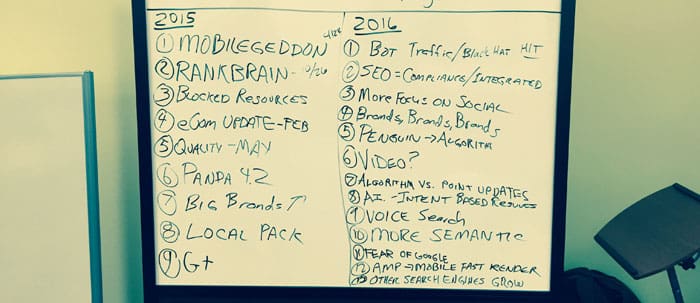 2015
① MOBILEGEDDON 4/21
② RANKBRAIN - 10/26
③ BLOCKED RESOURCES
④ eCom UPDATE - FEB
⑤ QUALITY - MAY
⑥ PANDA 4.2
⑦ BIG BRANDS ↑
⑧ LOCAL PACK
⑨ G+
2016
① BOT TRAFFIC/BLACK HAT HIT
② SEO = COMPLIANCE/INTEGRATED
③ MORE FOCUS ON SOCIAL
④ Brands, Brands, Brands
⑤ PENGUIN → ALGORITH
⑥ VIDEO?
⑦ ALGORITHM VS. POINT UPDATES
⑧ A.I. - INTENT BASED RESULTS
⑨ VOICE Search
⑩ MORE SEMANTIC
⑪ FEAR OF GOOGLE
⑫ AMP → MOBILE FAST RENDER
⑬ OTHER SEARCH ENGINES GROW